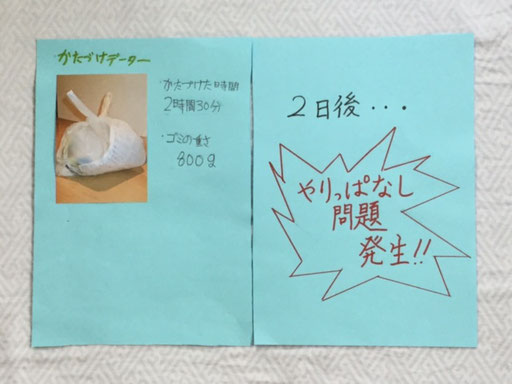 かたづけデーター
・かたづけた時間
2時間30分
・ゴミの重さ
800g
2日後・・・
やりっぱなし
問題
発生!!